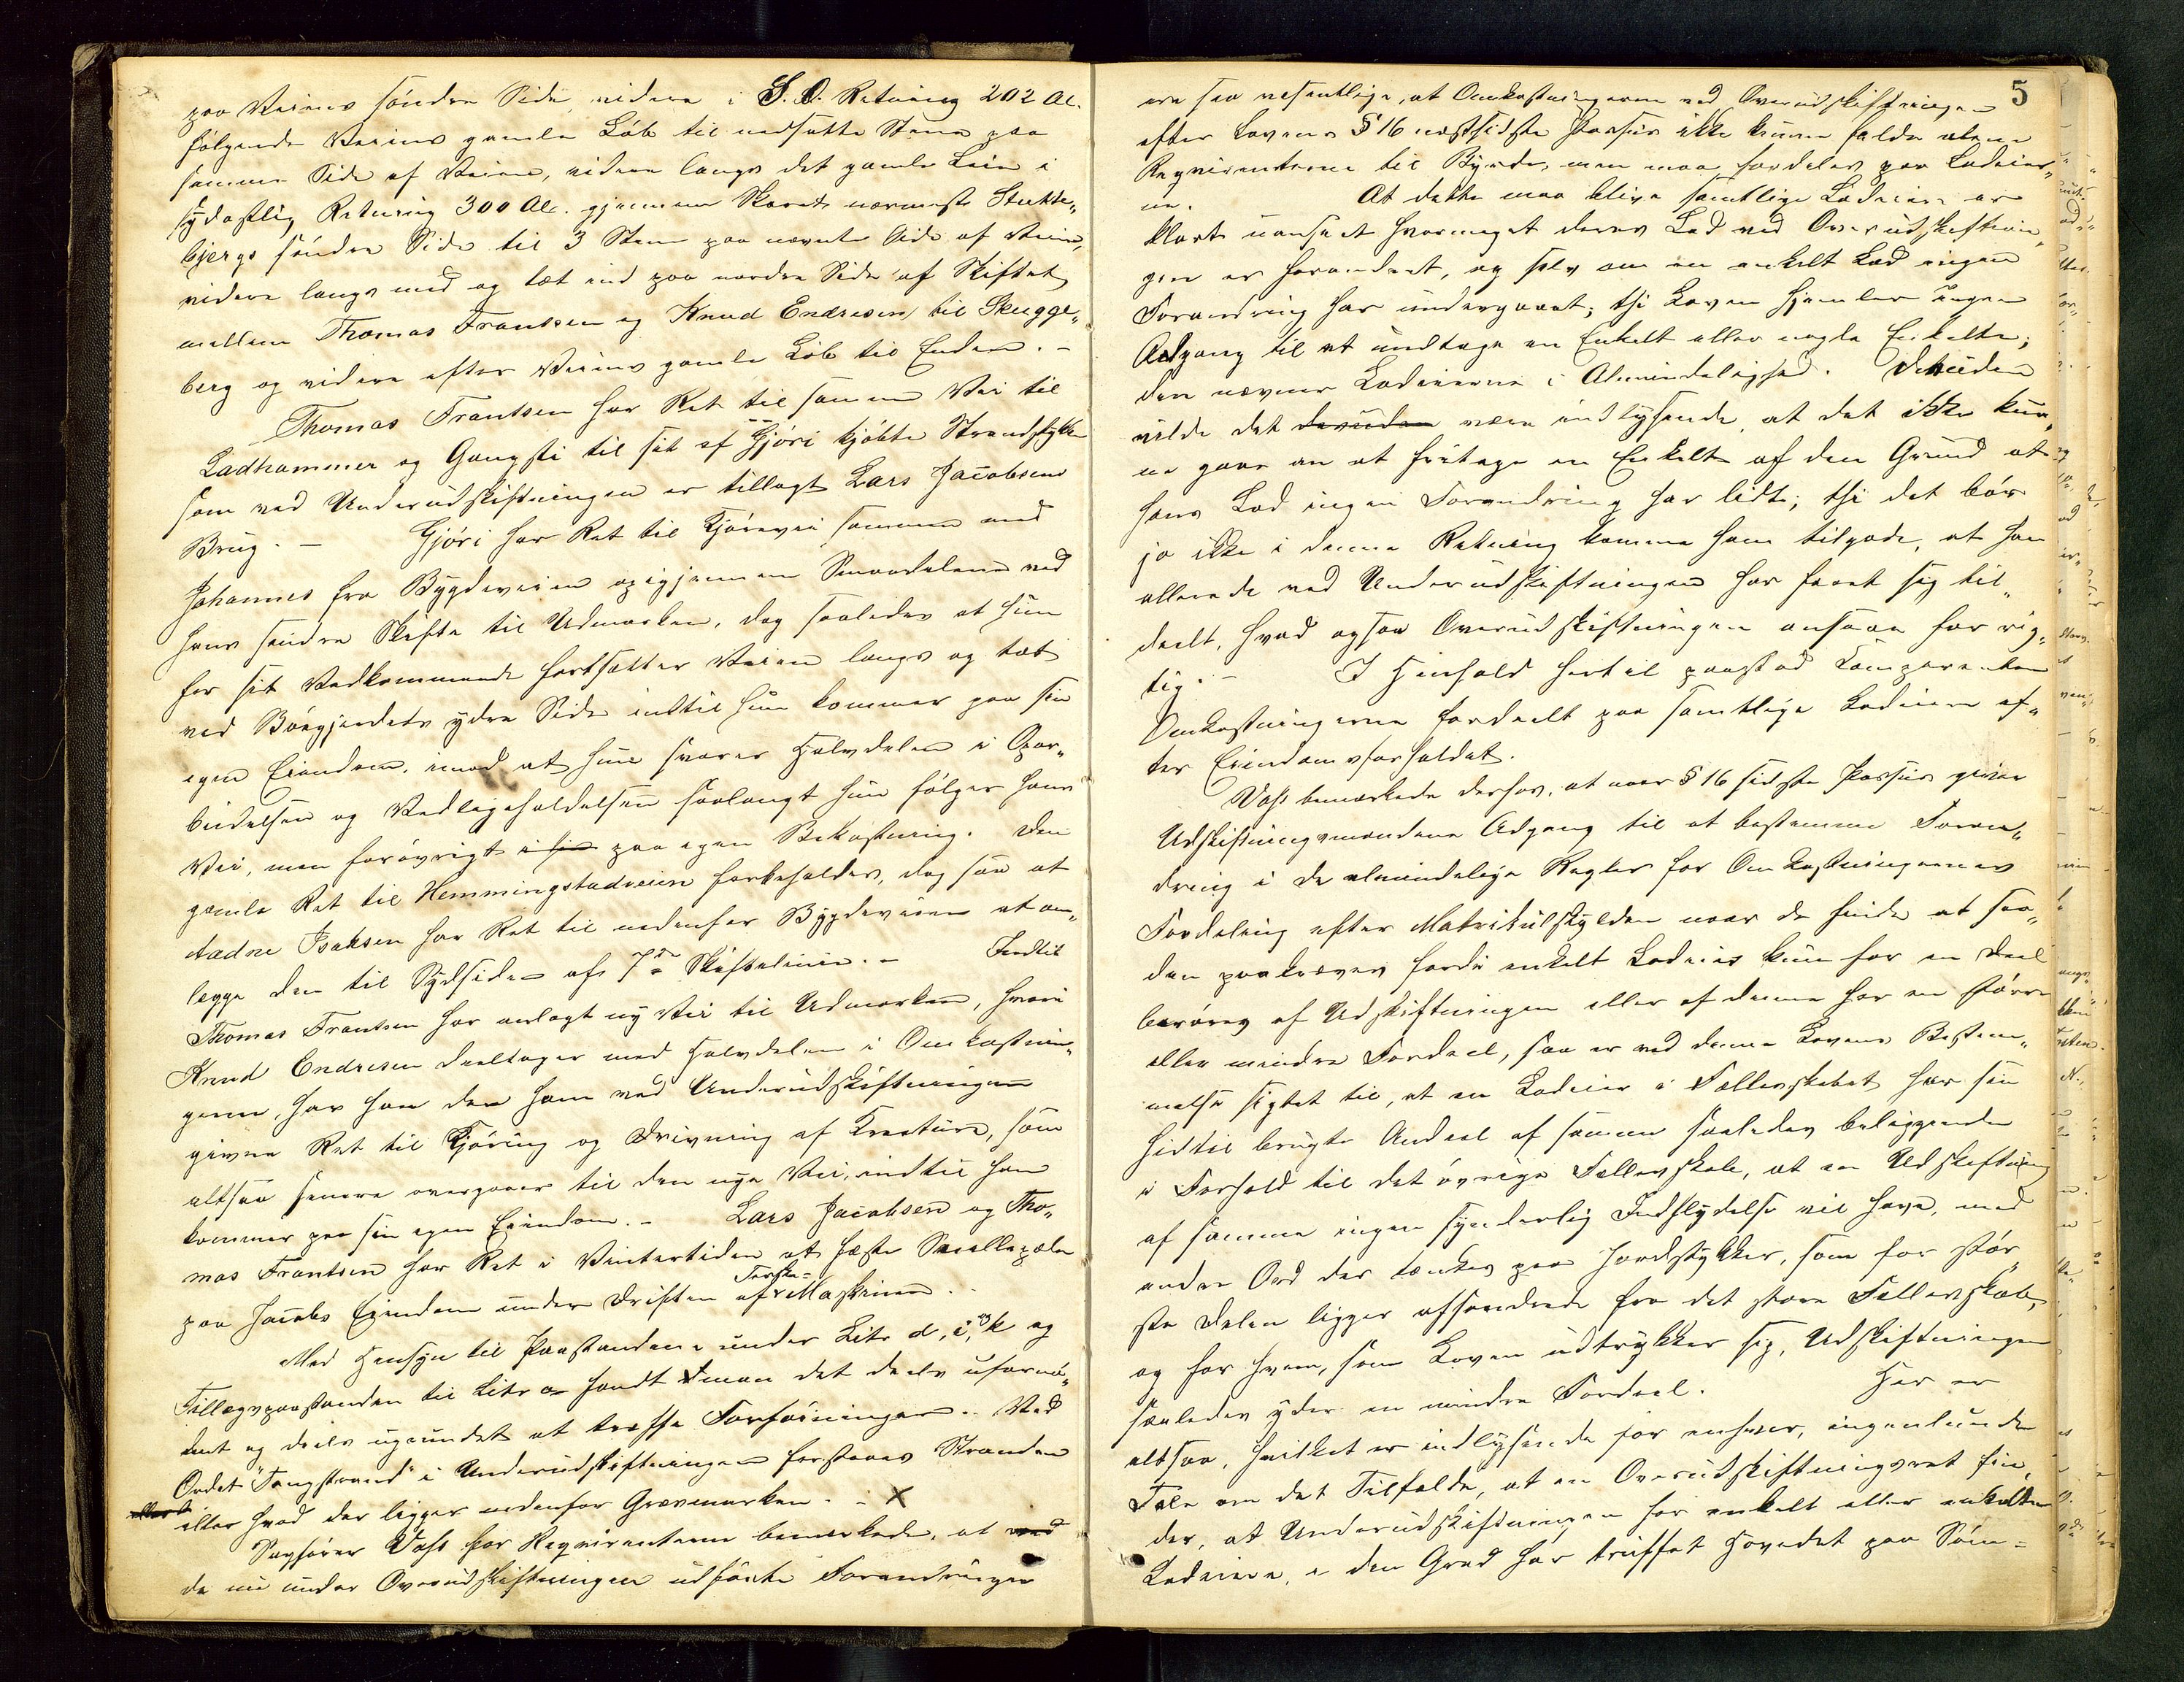 paa Veiens söndre Side, videre i S.O. Retning 202 Al.
følgende Veiens gamle Löb til nedsatte Stene paa
samme Side af Veien, videre langs det gamle Leie i
sydostlig Retning 300 Al. gjennem Skaret nærmest Stukke„
bjergs söndre Side til 3 Stene paa nævnte Side af Veien,
videre langs med og tæt ind paa nordre Side af Skiftet
mellem Thomas Frantsen og Knud Endresen til Skugge„
berg og videre efter Veiens gamle Löb til Enden. –
Thomas Frantsen har Ret til samme Vei til
Ladhammer og Gangsti til sit af Gjöri kjöbte Strandstykke
som ved Underudskiftningen er tillagt Lars Jacobsens
Brug. – Gjöri har Ret til Kjörevei sammen med
Johannes fra Bygdeveien opigjennem Smaadalene ved
hans söndre Skifte til Udmarken, dog saaledes at hun
for sit Vedkommende fortsætter Veien langs og tæt
ved Böegjerdets ydre Side indtil hun kommer paa sin
egen Eiendom, imod at hun svarer Halvdelen i Opar„
beidelsen og Vedligeholdelsen saalangt hun fölger hans
Vei, men forövrigt i sin paa egen Bekostning. Den
gamle Ret til Hemmingstadveien forbeholdes, dog saa at
Aadne Isaksen har Ret til nedenfor Bygdeveien at an„
lægge den til Sydsiden afs 7de Skiftelinie. – Indtil
Thomas Frantsen har anlagt ny Vei til Udmarken, hvori
Knud Endresen deeltager med Halvdelen i Omkostnin„
gerne, har han den ham ved Underudskiftningen
givne Ret til Kjöring og Drivning af Kreature, som
altsaa senere overgaaer til den nye Vei, indtil han
kommer paa sin egen Eiendom. – Lars Jacobsen og Tho„
mas Frantsen har Ret i Vintertiden at fæste
paa Jacobs Eiendom under Driften af Tærske= Maskinen.
Med Hensyn til Paastandene under Litr d, i, k og
Tillægspaastanden til Litr a fandt man det deels ufornö„
dent og deels ugrundet at træffe Forföininger. Ved
Ordet "Tangstrand" i Underudskiftningen forstaaes Stranden
eller hvad der ligger nedenfor Græsmarken. – X
Sagförer Voss for Reqvirenterne bemærkede, at ved
de nu under Overudskiftningen udförte Forandringer
5
ere saa væsentlige, at Omkostningerne ved Overudskiftningen
efter Lovens § 16 næstsidste Passus ikke kunne falde alene
Reqvirenterne til Byrde, men maa fordeles paa Lodeier„
ne. At dette maa blive samtlige Lodeiere er
klart uanseet hvormeget deres Lod ved Overudskiftnin„
gen er forandret, og selv om en enkelt Lod ingen
Forandring har undergaaet; thi Loven hjemler ingen
Adgang til at undtage en Enkelt eller nogle Enkelte;
den nævner Lodeierne i Almindelighed. Desuden
vilde det desuden være indlysende, at det ikke kun„
ne gaae an at fritage en Enkelt af den Grund at
hans Lod ingen Forandring har lidt; thi det bör
jo ikke i denne Retning komme ham tilgode, at han
allerede ved Underudskiftningen har faaet sig til„
deelt, hvad ogsaa Overudskiftningen ansaae for rig„
tig. – I Henhold hertil paastod Comparenten
Omkostningerne fordeelt paa samtlige Lodeiere ef„
ter Eiendomsforholdet.
Voss bemærkede derhos, at naar § 16 sidste Passus giver
Udskiftningsmændene Adgang til at bestemme Foran„
dring i de almindelige Regler for Omkostningernes
Fordeling efter Matrikulskylden naar de finde at saa„
dan paakræves fordi enkelt Lodeier kun for en Deel
beröres af Udskiftningen eller af denne har en större
eller mindre Fordeel, saa er ved denne Lovens Bestem„
melse sigtet til, at en Lodeier i Fællesskabet har sin
hidtil brugte Andeel af samme saaledes beliggende
i Forhold til det övrige Fællesskab, at en Udskiftning
af samme ingen synderlig Indflydelse vil have, med
andre Ord der tænkes paa Jordstykker, som for stör„
ste Delen ligger afsondrede fra det store Fællesskab,
og for hvem, som Loven udtrykker sig, Udskiftningen
saaledes yder en mindre Fordeel. Her er
altsaa, hvilket er indlysende for enhver, ingenlunde
Tale om det Tilfælde, at en Overudskiftningsret fin„
der, at Underudskiftningen for enkelt eller enkelte
Lodeiere, i den Grad har truffet Hovedet paa Söm=